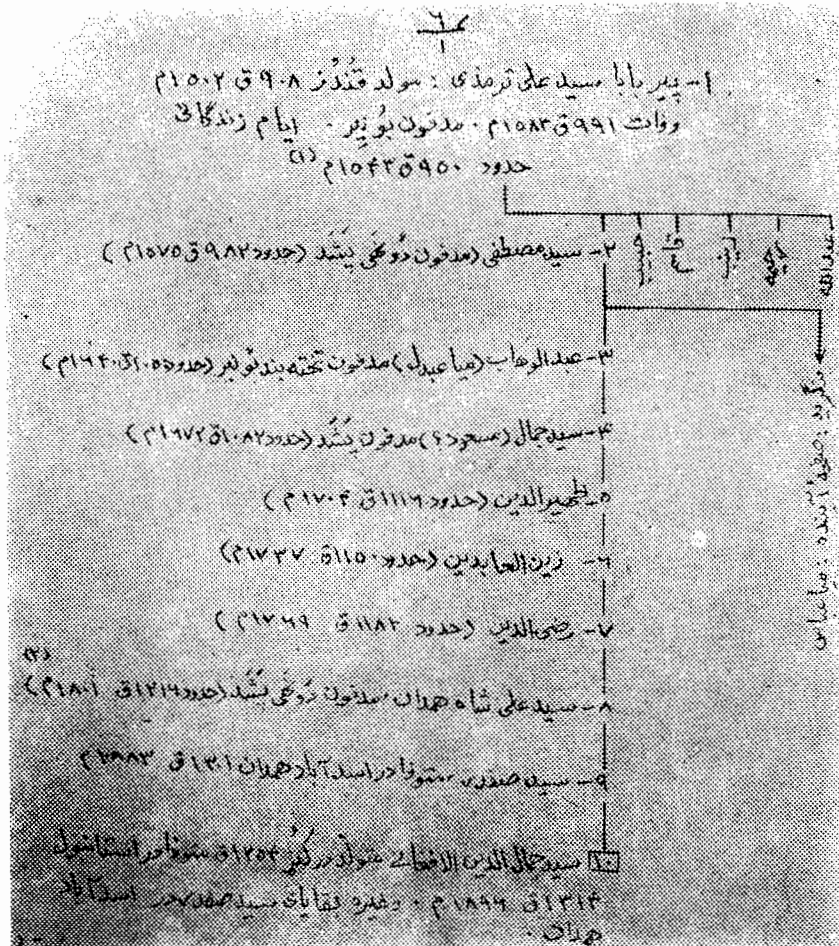 ۱- پیر بابا سید علی ترمذی : مولد قُندُز ۹۰۸ ق ۱۵۰۲ م
وفات ۹۹۱ ق ۱۵۸۳ م . مدفون بُونِیر . ایام زندگانی
حدود ۹۵۰ ق ۱۵۴۳ م (۱)
۲- سید مصطفی (مدفون دُوغَی پَشَد (حدود ۹۸۲ ق ۱۵۷۵ م)
۳- عبدالوهاب (میا عبدل) مدفون تخته بند بُونیر (حدود ۱۰۵۰ ق ۱۶۴۰ م)
۴- سید جمال (مسعود؟) مدفون پَشَد (حدود ۱۰۸۲ ق ۱۶۷۲ م)
۵- ظهیرالدین (حدود ۱۱۱۶ ق ۱۷۰۴ م)
۶- زین العابدین (حدود ۱۱۵۰ ق ۱۷۳۷ م)
۷- رضی الدین (حدود ۱۱۸۳ ق ۱۷۶۹ م)
۸- سید علی شاه همدان مدفون دُوغَی پَشَد (حدود ۱۲۱۶ ق ۱۸۰۱ م) (۲)
۹- سید صفدر، متوفا در اسدآباد همدان ۱۳۰۱ ق ۱۸۸۳ م
۱۰ سید جمال الدین الافغانی متولد در کُنَر ۱۲۵۴ ق متوفا در استانبول
۱۳۱۴ ق ۱۸۹۶ م . وغیره بقایای سید صفدر در اسدآباد
همدان .
صفحهٔ آینده : میا عباس